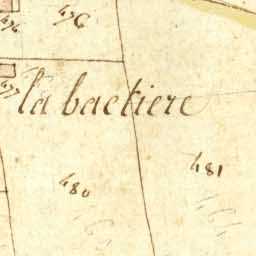 474
476
477
la bactiere
480
481